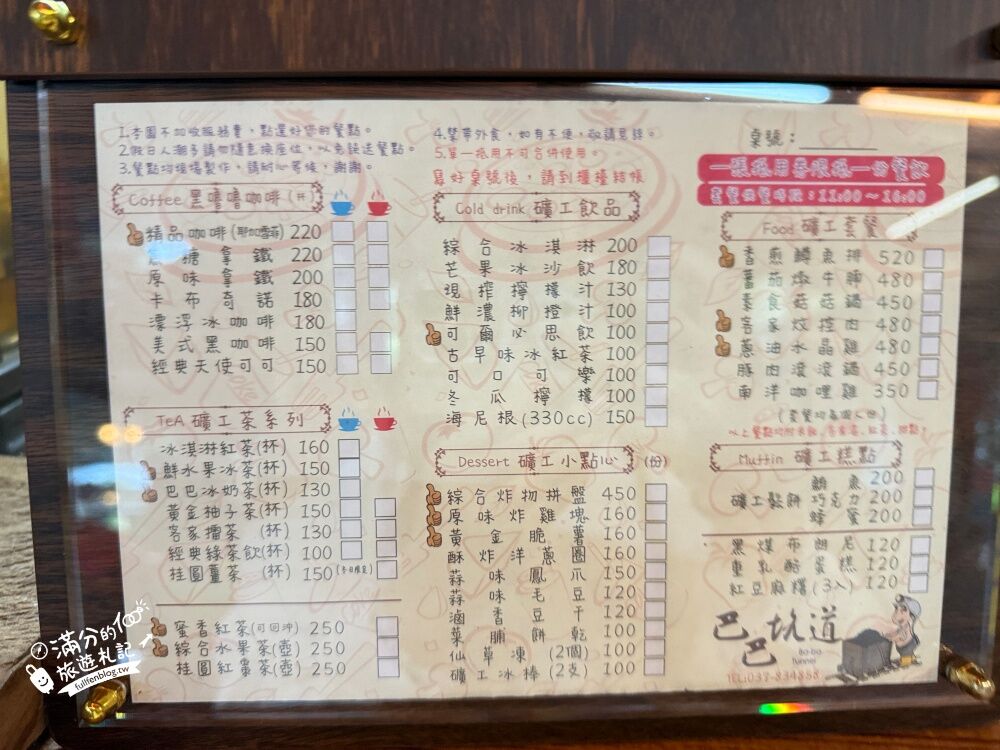 1.本園不加收服務費，點選好您的餐點。
2.假日人潮多請勿隨意換座位，以免誤送餐點。
3.餐點均現場製作，請耐心等候，謝謝。
4.禁帶外食，如有不便，敬請見諒。
5.單一抵用不可合併使用。
寫好桌號後，請到櫃檯結帳
桌號：
一張抵用券限抵一份餐飲
套餐供餐時段：11:00～16:00
Coffee 黑嚕嚕咖啡（杯）
精品咖啡(耶加雪菲) 220
糖拿鐵 220
原味拿鐵 200
卡布奇諾 180
漂浮冰咖啡 180
美式黑咖啡 150
經典天使可可 150
TeA 礦工茶系列
冰淇淋紅茶(杯) 160
鮮水果冰茶(杯) 150
巴巴冰奶茶(杯) 130
黃金柚子茶(杯) 150
客家擂茶 (杯) 130
經典綠茶飲(杯) 100
桂圓薑茶 (杯) 150(冬日限定)
蜜香紅茶(可回沖) 250
綜合水果茶(壺) 250
桂圓紅棗茶(壺) 250
Cold drink 礦工飲品
綜合冰淇淋 200
芒果冰沙飲 180
現搾檸檬汁 130
鮮濃柳橙汁 100
可爾必思飲 100
古早味冰紅茶 100
可口可樂 100
冬瓜檸檬 100
海尼根(330cc) 150
Dessert 礦工小點心 (份)
綜合炸物拼盤 450
原味炸雞塊 160
黃金脆薯 160
酥炸洋蔥圈 160
蒜味鳳爪 150
蒜味毛豆 120
滷香豆干 120
菜脯餅乾 100
仙草凍 (2個) 100
礦工冰棒(2支) 100
Food 礦工套餐
香煎鱈魚排 520
蕃茄燉牛腩 480
素食菇菇鍋 450
客家炆控肉 480
蔥油水晶雞 480
豚肉滾滾鍋 450
南洋咖哩雞 350
(套餐均為個人份)
Muffin 礦工糕點
礦工鬆餅 鮪魚 200
巧克力 200
蜂蜜 200
黑煤布朗尼 120
重乳酪蛋糕 120
紅豆麻糬(3入) 120
巴巴坑道
Ba-ba Tunnel
TEL:037-834858
滿分的100
旅遊札記
fullfenblog.tw